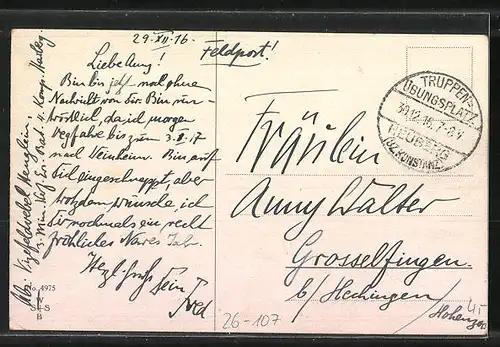 29.XII.16
Feldpost!
Liebe Anny!
Bin bis jetzt noch ohne
Nachricht von Dir. Bin
tröstlich, da ich morgen
wegfahre bis zum 3.I.17
nach Weinheim. Bin auf
eingeschnappt, aber
trotzdem wünsche ich
Dir nochmals ein recht
fröhliches Neues Jahr.
Herzl. Gruß Dein
Abs. Vizefeldwebel
4. Komp.
TRUPPEN-
ÜBUNGSPLATZ
30.12.16. 7-8V
HEUBERG
(BZ. KONSTANZ)
Fräulein
Anny Walter
Grosselfingen
b/ Hechingen
/Hohenzo
No. 4975
W
S S
B
26-107